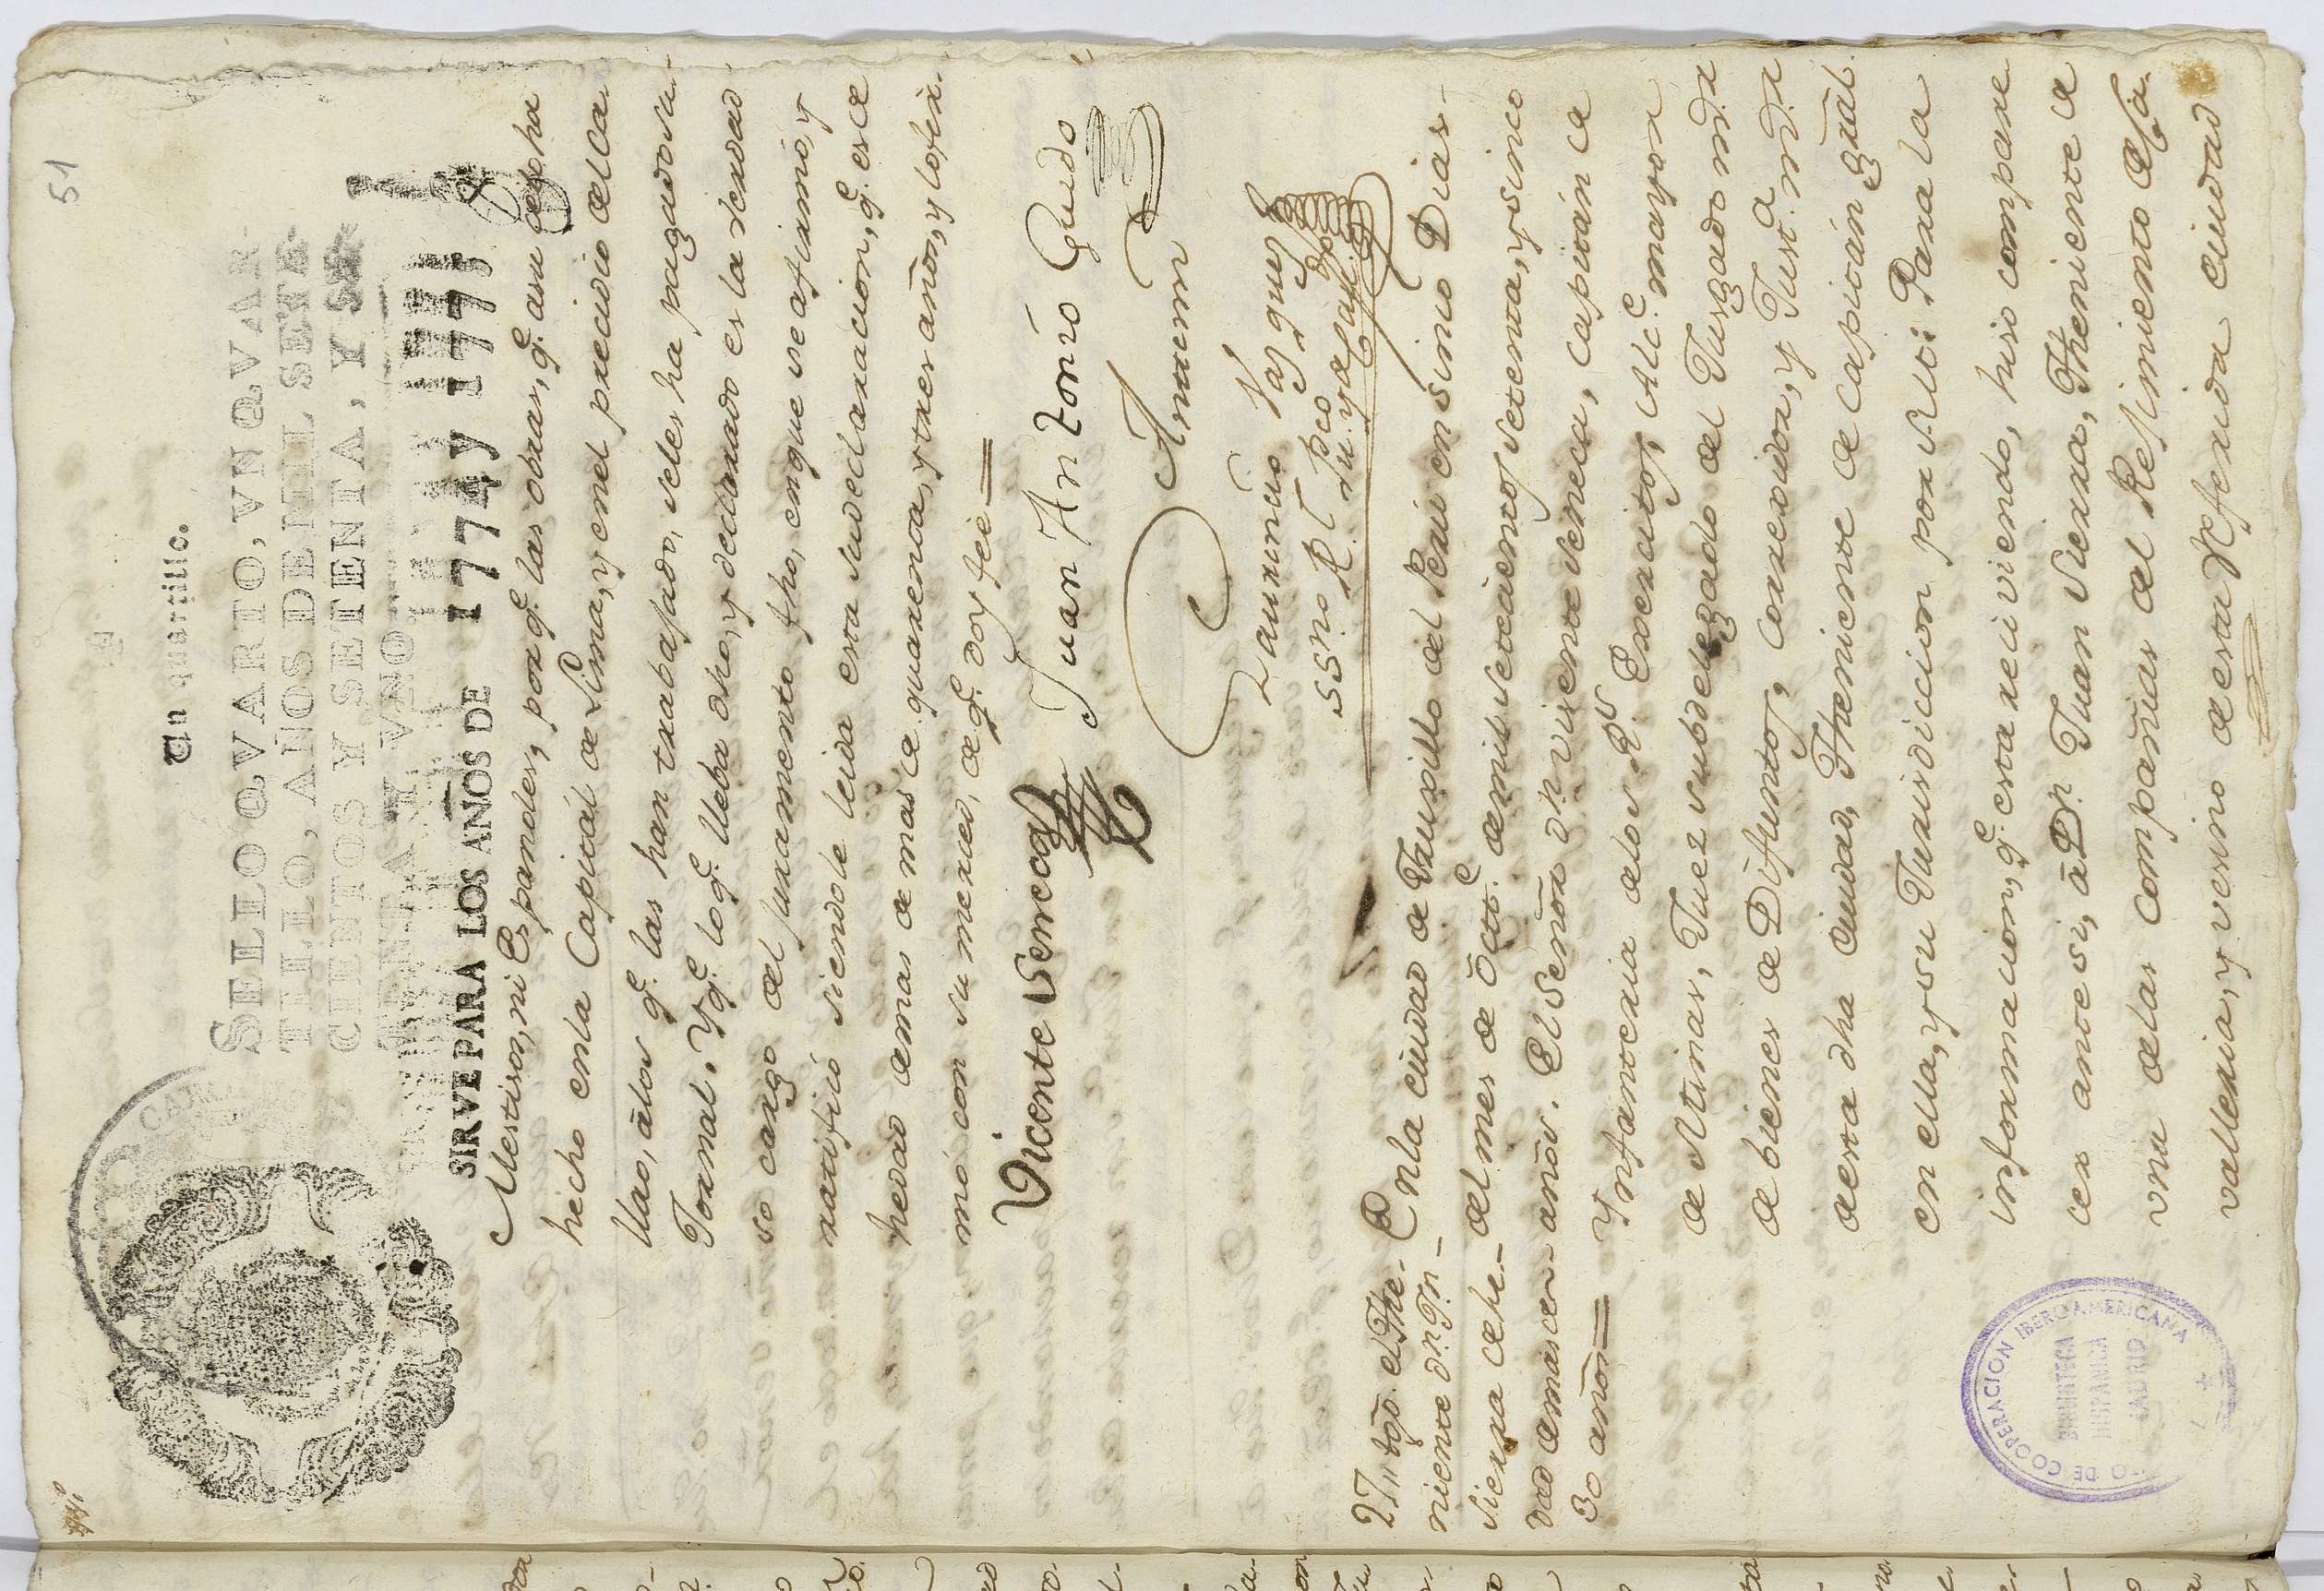 51
Un quartillo.
SELLO QVARTO, VN QVAR-
TILLO, AÑOS DE MIL SETE-
CIENTOS Y SETENTA, Y SE-
TENTA Y VNO
SIRVE PARA LOS AÑOS DE 1774 y 1775
Mestisos, ni Espanoles, por q.e las obras, q.e asu costo ha
hecho enla Capitál de Lima, y enel precidio del Ca-
llao, álos q.e las han trabajado, seles ha pagado su
Jornal. Y q.e loq.e lleba dho, y declarado es la verdad
so cargo del juramento fho, enque se afirmó, y
ratificó siendole leida esta su declaracion, q.e es de
hedad demas de quarenta, y tres años, y lo fir-
mó con su merced, de q.e doy fee =
Vicente Seneca
Juan Antonio Guido
Antemi
Laurencio Vasques
SSno R.l Pu.co y de Cav.do
27,, tgõ. el The-
niente D.n Jn.
Sierra de he-
dad demas de
30 años =
Enla ciudad de Truxillo del Perú en sinco Dias
del mes de Octt.e de mil setecientos setenta, y sinco
años. El Señor D.n Visente Seneca, Capitán de
Ynfanteria delos R.s Exercitos, Alc.e mayor
de Minas, Juez subdelegado del Jusgado mõr
de bienes de Difuntos, Corexidor, y Just.a mõr
desta dha ciudad, Theniente de Capitán gral.
en ella, y su Jurisdiccion por S.M: Para la
informacion, q.e esta reciviendo, hiso compare-
cer ante si, á D.n Juan Sierra, Theniente de
una delas compañias del Regimiento de Ca-
valleria, y vesino de esta Referida ciudad
COOPERACION IBEROAMERICANA
BIBLIOTECA
HISPANICA
MADRID